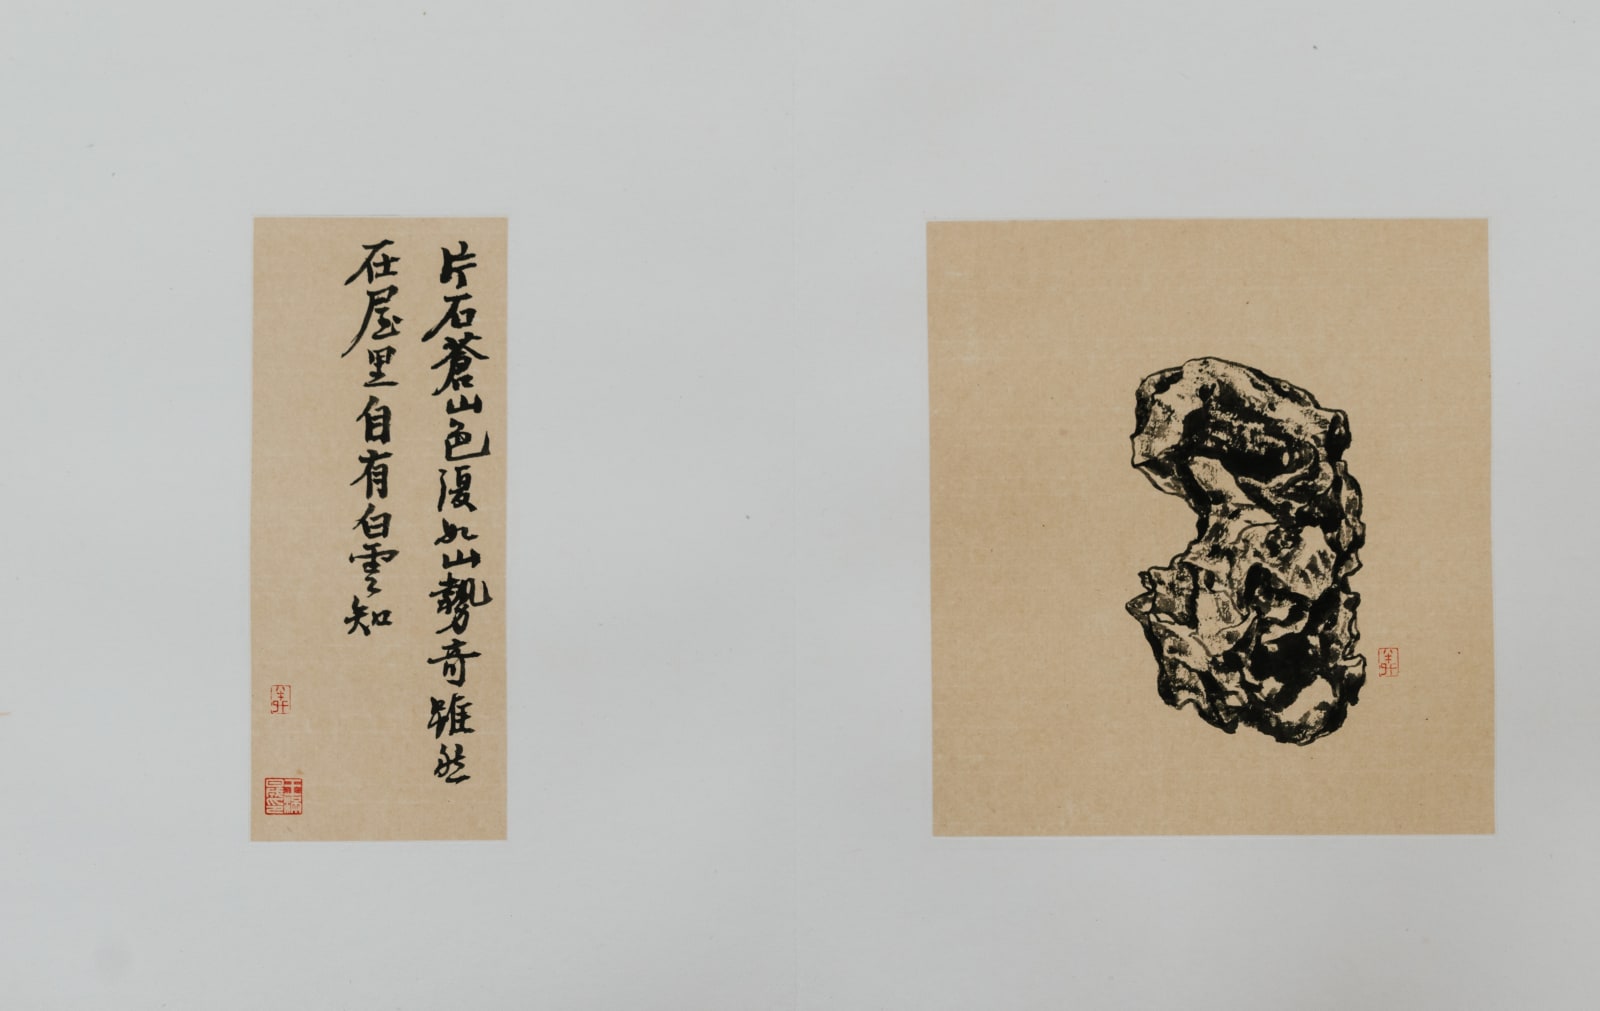 片石蒼山色復如山勢奇雖然
在屋里自有白雲知